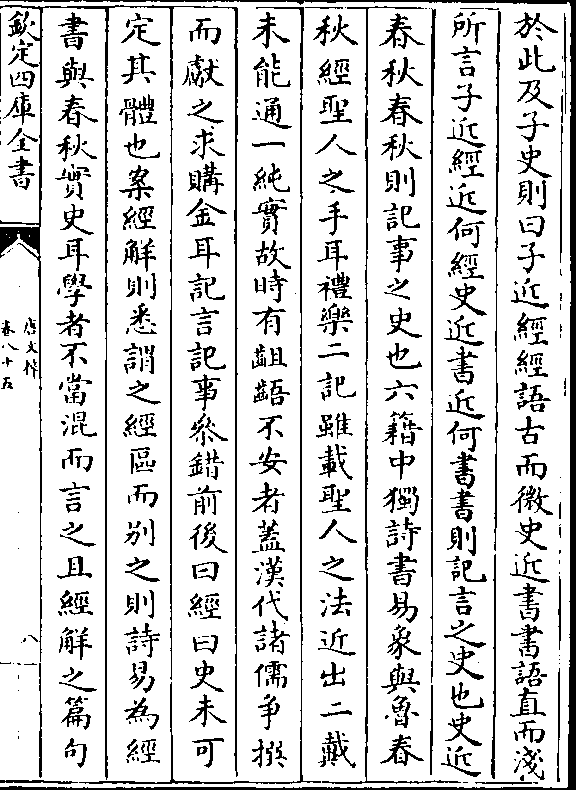 於此及子史則曰子近經經語古而微史近書書語直而淺
所言子近經近何經史近書近何書書則記言之史也史近
春秋春秋則記事之史也六籍中獨詩書易象與魯春
秋經聖人之手耳禮樂二記雖載聖人之法近出二戴
未能通一純實故時有齟齬不安者蓋漢代諸儒爭撰
而獻之求購金耳記言記事參錯前後曰經曰史未可
定其體也案經解則悉謂之經區而别之則詩易為經
書與春秋實史耳學者不當混而言之且經解之篇句
欽定四庫全書
唐文粹
卷八十五
八